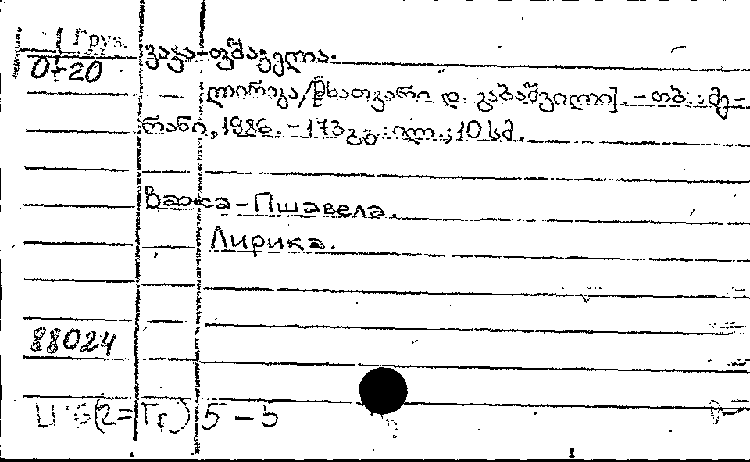 1 Груз.
0-20
ვაჟა-ფშაველა.
ლირიკა/[მხატვარი დ. გაბაშვილი]. - თბ.: მე-
რანი, 1986. - 173 გვ.: ილ.; 10 სმ.
Важа-Пшавела.
Лирика.
88024
5-5